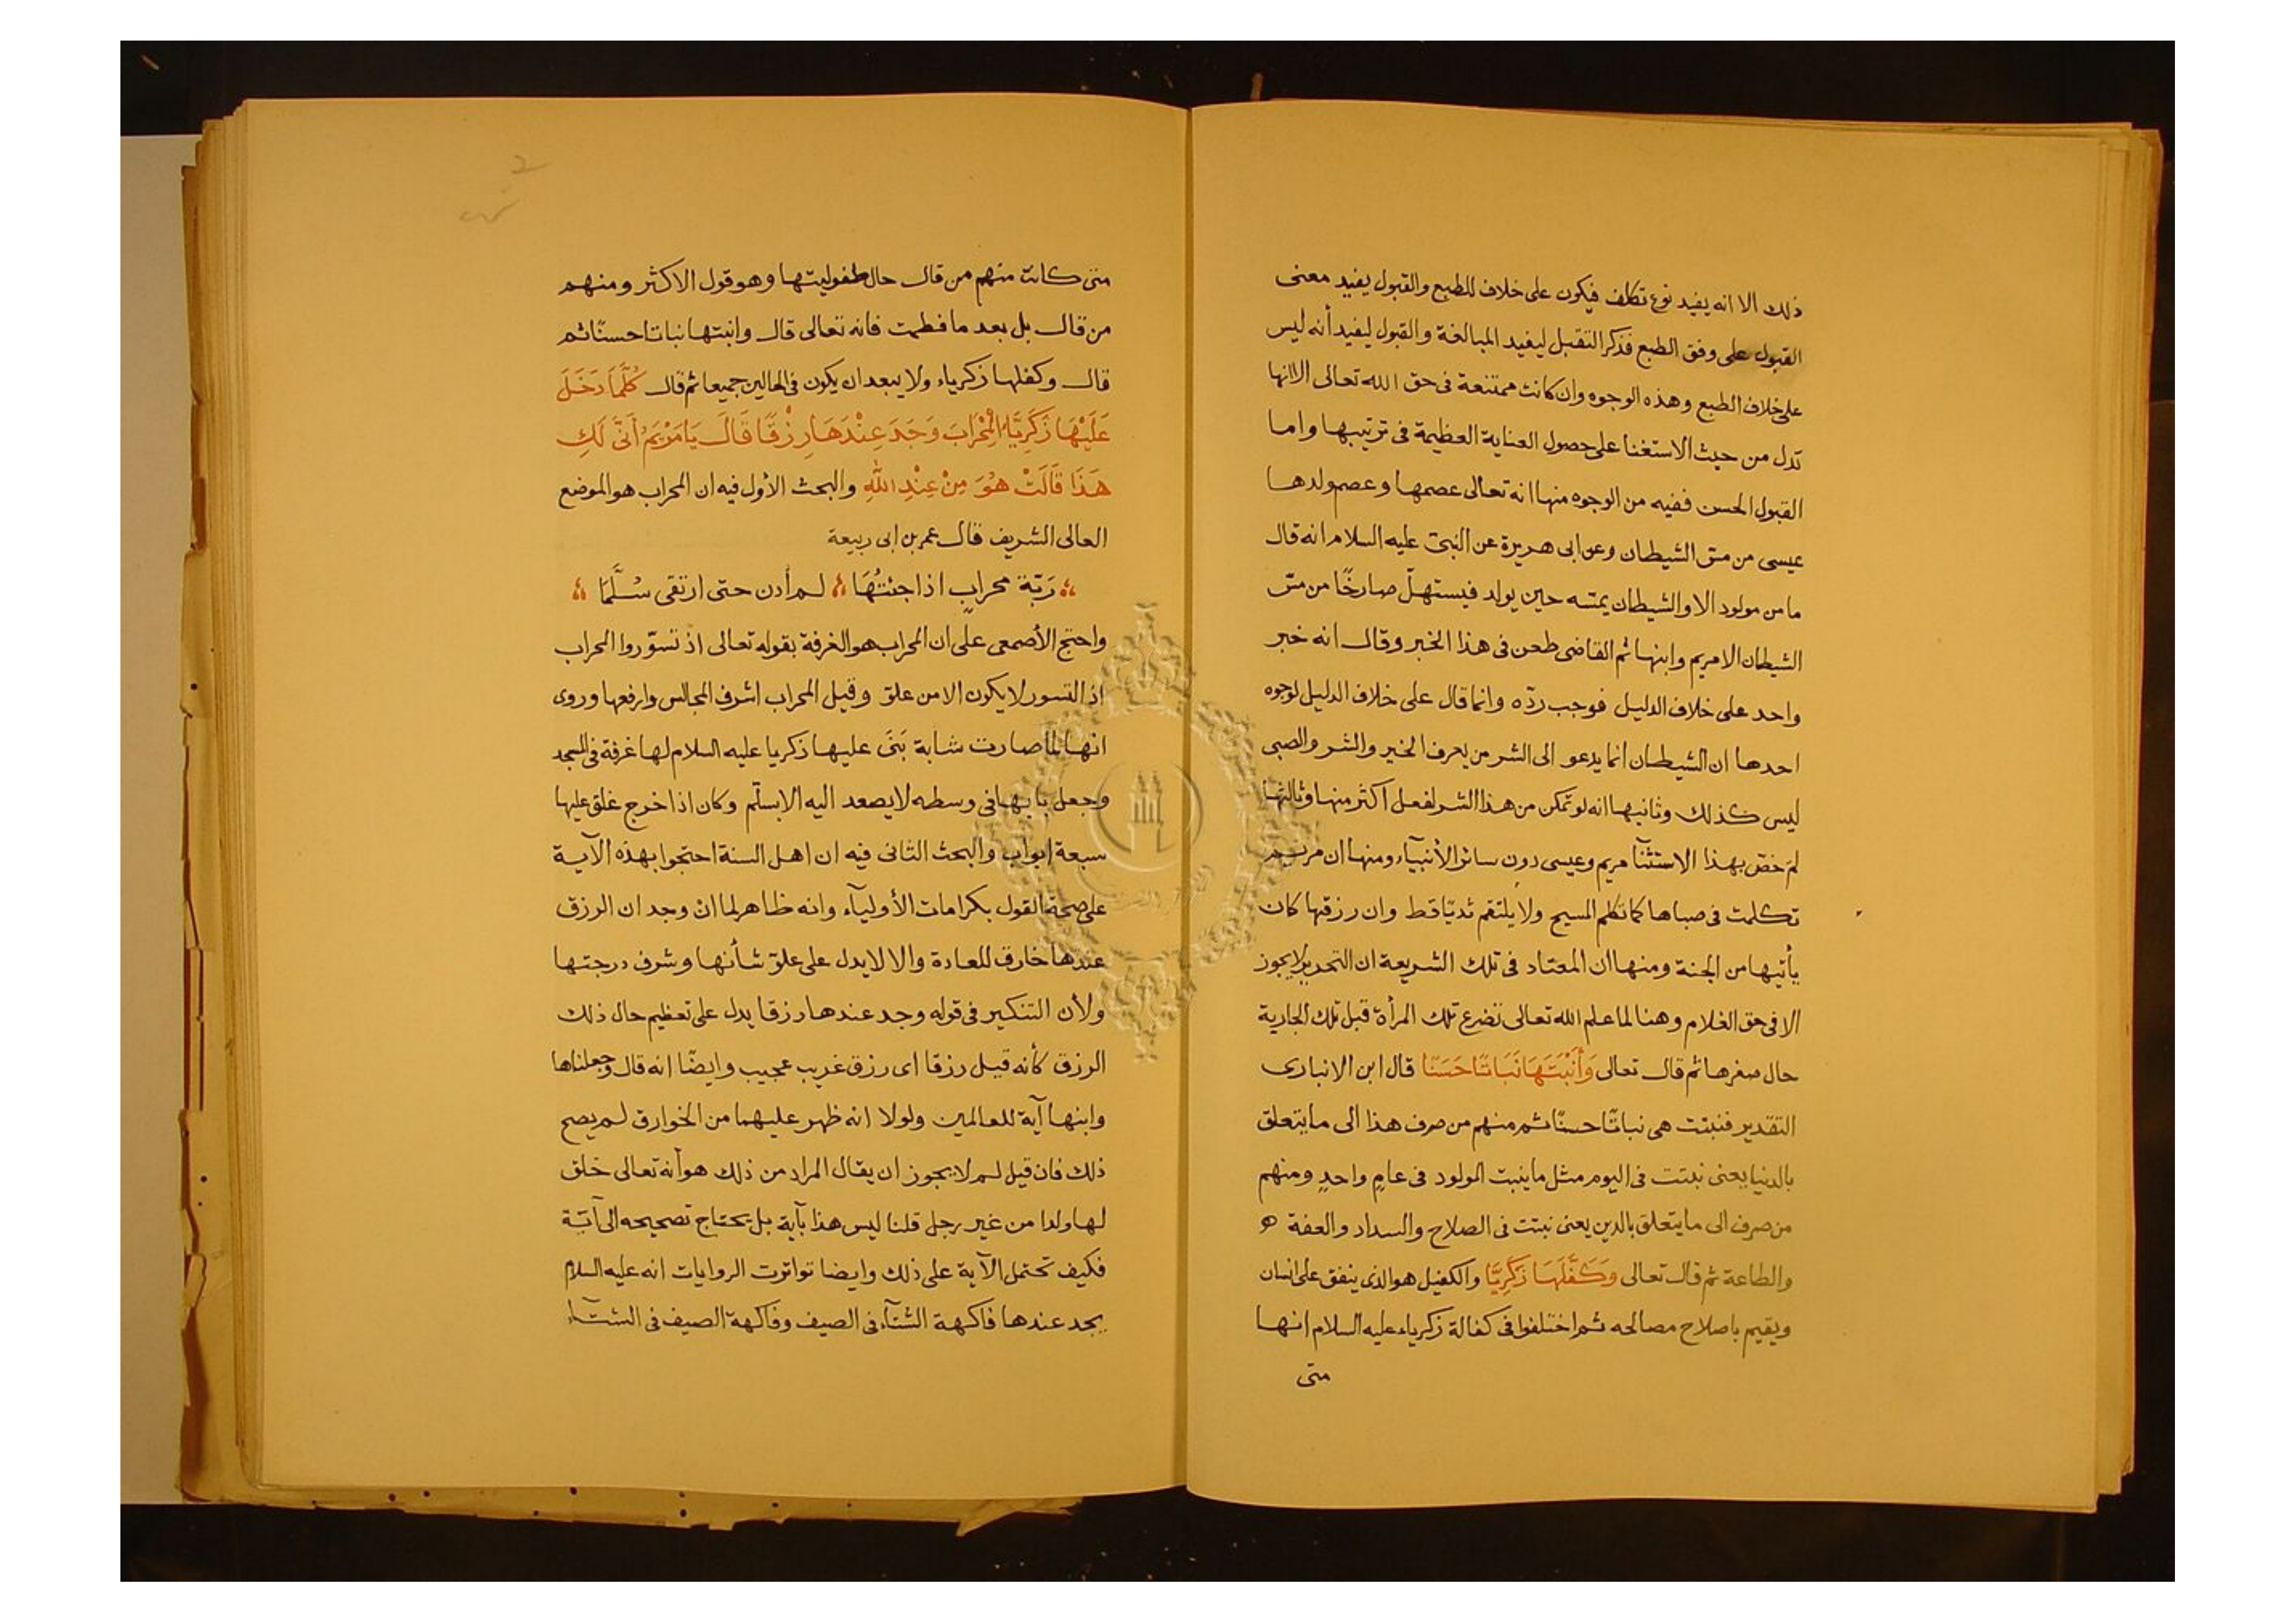 ذلك الا انه يفيد نوع تكلف فيكون على خلاف للطبع والقبول يفيد معنى
القبول على وفق الطبع فذكر التقبل ليفيد المبالغة والقبول ليفيد أنه ليس
على خلاف الطبع وهذه الوجوه وان كانت ممتنعة فى حق الله تعالى الا انها
تدل من حيث الاستغنا على حصول العناية العظيمة فى ترتيبها واما
القبول الحسن ففيه من الوجوه منها انه تعالى عصمها وعصم ولدها
عيسى من مسّ الشيطان وعن ابى هريرة عن النبىّ عليه السلام انه قال
ما من مولود الا والشيطان يمسّه حين يولد فيستهلّ صارخًا من مسّ
الشيطان الا مريم وابنها ثم القاضى طعن فى هذا الخبر وقال انه خبر
واحد على خلاف الدليل فوجب ردّه وانما قال على خلاف الدليل لوجوه
احدها ان الشيطان انما يدعو الى الشر من يعرف الخير والشر والصبى
ليس كذلك وثانيها انه لو تمكن من هذا الشر لفعل اكثر منها وثالثها
لم خصّ بهذا الاستثنآ مريم وعيسى دون سائر الأنبيآء ومنها ان مريم
تكلمت فى صباها كما تكلم المسيح ولا يلتقم ثديًا قط وان رزقها كان
يأتيها من الجنة ومنها ان المعتاد فى تلك الشريعة ان التحرير لا يجوز
الا فى حق الغلام وهنا لما علم الله تعالى تضرع تلك المرأة قبل تلك الجارية
حال صغرها ثم قال تعالى وَأَنْبَتَهَا نَبَاتًا حَسَنًا قال ابن الانبارى
التقدير فنبتت هى نباتًا حسنًا ثم منهم من صرف هذا الى ما يتعلق
بالدنيا يعنى نبتت فى اليوم مثل ما ينبت المولود فى عامٍ واحدٍ ومنهم
من صرف الى ما يتعلق بالدين يعنى نبتت فى الصلاح والسداد والعفة
والطاعة ثم قال تعالى وَكَفَّلَهَا زَكَرِيَّا والكفيل هو الذى ينفق على انسان
ويقيم باصلاح مصالحه ثم اختلفوا فى كفالة زكرياء عليه السلام انها
متى
متى كانت منهم من قال حال طفوليتها وهو قول الاكثر ومنهم
من قال بل بعد ما فطمت فانه تعالى قال وانبتها نباتا حسنًا ثم
قال وكفلها زكرياء ولا يبعد ان يكون فى الحالين جميعا ثم قال كُلَّمَا دَخَلَ
عَلَيْهَا زَكَرِيَّاءُ الْمِحْرَابَ وَجَدَ عِنْدَهَا رِزْقًا قَالَ يَا مَرْيَمُ أَنَّى لَكِ
هَذَا قَالَتْ هُوَ مِنْ عِنْدِ اللهِ والبحث الأول فيه ان المحراب هو الموضع
العالى الشريف قال عمر بن ابى ربيعة
رَبّة محرابٍ اذا جئتُهَا لم أدن حتى ارتقى سُلَّمَا
واحتج الأصمعى على ان المحراب هو الغرفة بقوله تعالى اذ تسوّروا المحراب
اذ التسور لا يكون الا من علوّ وقيل المحراب اشرف المجالس وارفعها وروى
انها لما صارت شابة بَنَى عليها زكريا عليه السلام لها غرفة فى المسجد
وجعل بابها فى وسطه لا يصعد اليه الا بسلّم وكان اذا خرج غلق عليها
سبعة ابواب والبحث الثانى فيه ان اهل السنة احتجوا بهذه الآية
على صحة القول بكرامات الأوليآء وانه ظاهر لما انْ وجدان الرزق
عندها خارق للعادة والا لا يدل على علوّ شأنها وشرف درجتها
ولأن التنكير فى قوله وجد عندها رزقا يدل على تعظيم حال ذلك
الرزق كأنه قيل رزقا اى رزق غريب عجيب وايضًا انه قال وجعلناها
وابنها آية للعالمين ولولا انه ظهر عليهما من الخوارق لم يصح
ذلك فان قيل لم لا يجوز ان يقال المراد من ذلك هو أنه تعالى خلق
لها ولدا من غير رجل قلنا ليس هذا بآية بل يحتاج تصحيحه الى آية
فكيف تحتمل الآية على ذلك وايضا تواترت الروايات انه عليه السلام
يجد عندها فاكهة الشتآء فى الصيف وفاكهة الصيف فى الشتآء